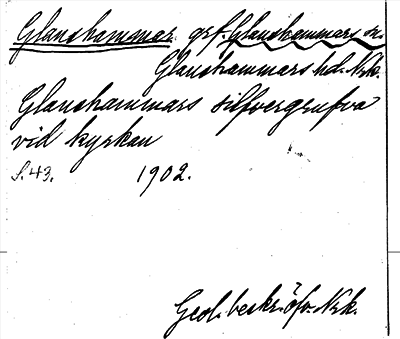 Glanshammar grf. Glanshammars sn.
Glanshammars hd. Nrk.
Glanshammars silfvergrufva
vid kyrkan
S. 43. 1902.
Geol. beskr. öfv. Nrk.